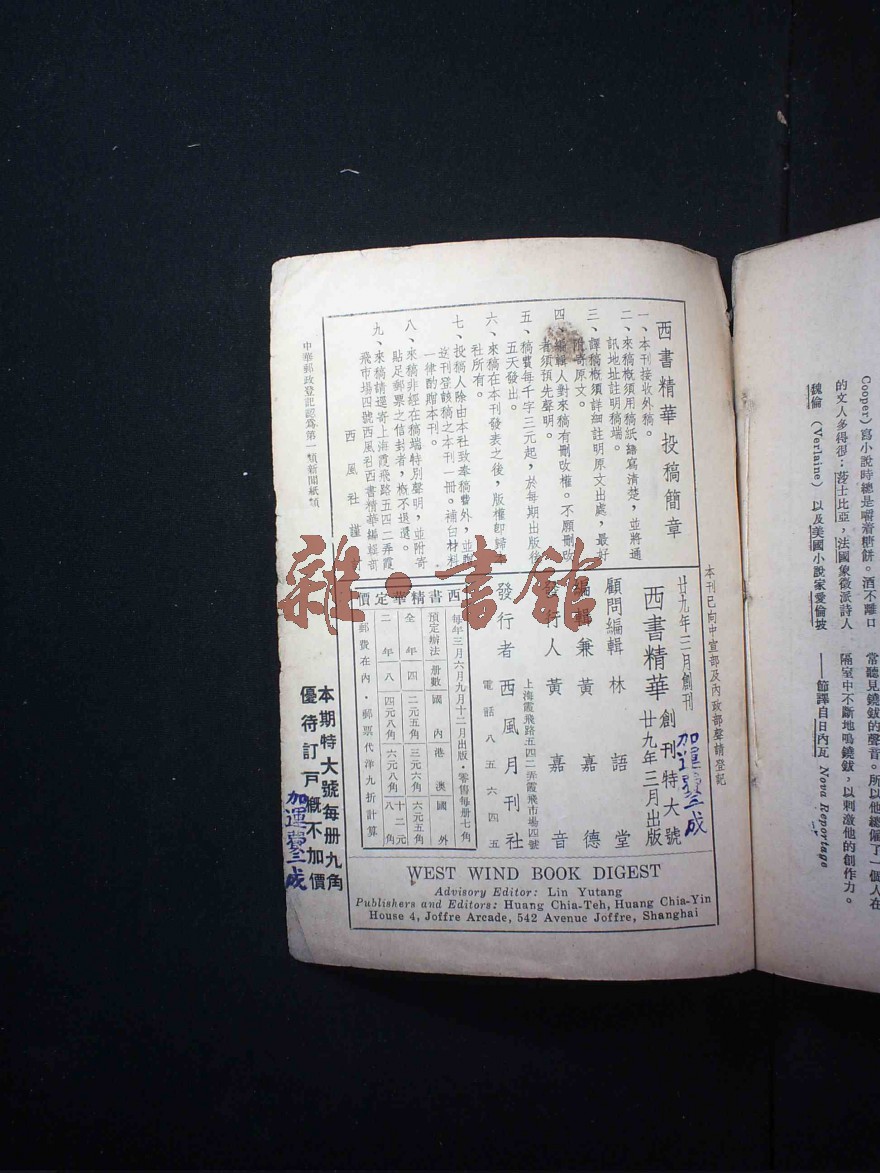 Cooper) 寫小說時總是嚼着糖餅。酒不離口
的文人多得很：莎士比亞，法國象徵派詩人
魏倫 (Verlaine) 以及美國小說家愛倫坡
常聽見鐃鈸的聲音。所以他總僱了一個人在
隔室中不斷地鳴鐃鈸，以刺激他的創作力。
——節譯自日內瓦 Nova Reportage
西書精華投稿簡章
一、本刊接收外稿。
二、來稿概須用稿紙繕寫清楚，並將通
訊地址註明稿端。
三、譯稿概須詳細註明原文出處，最好
附寄原文。
四、編輯人對來稿有刪改權。不願刪改
者須預先聲明。
五、稿費每千字三元起，於每期出版後
五天發出。
六、來稿在本刊發表之後，版權卽歸本
社所有。
七、投稿人除由本社致奉稿費外，並贈
送刊登該稿之本刊一冊。補白材料
一律酌贈本刊。
八、來稿非經在稿端特別聲明，並附寄
貼足郵票之信封者，概不退還。
九、來稿請逕寄上海霞飛路五四二弄霞
飛市場四號西風社西書精華編輯部
西風社謹訂
中華郵政登記認爲第一類新聞紙類
本刊已向中宣部及內政部聲請登記
廿九年三月創刊
西書精華 創刊特大號
廿九年三月出版
加運費三成
顧問編輯 林語堂
編輯兼 黃嘉德
發行人 黃嘉音
發行者 西風月刊社
上海霞飛路五四二弄霞飛市場四號
電話八五六四五
西書精華定價
每年三月六月九月十二月出版・零售每册七角
預定辦法 册數 國內 港澳 國外
全年 四 二元五角 三元六角 六元五角
二年 八 四元八角 六元八角 十二元八角
郵費在內・郵票代洋九折計算
本期特大號每册九角
優待訂戶概不加價
加運費三成
WEST WIND BOOK DIGEST
Advisory Editor: Lin Yutang
Publishers and Editors: Huang Chia-Teh, Huang Chia-Yin
House 4, Joffre Arcade, 542 Avenue Joffre, Shanghai
雜・書館